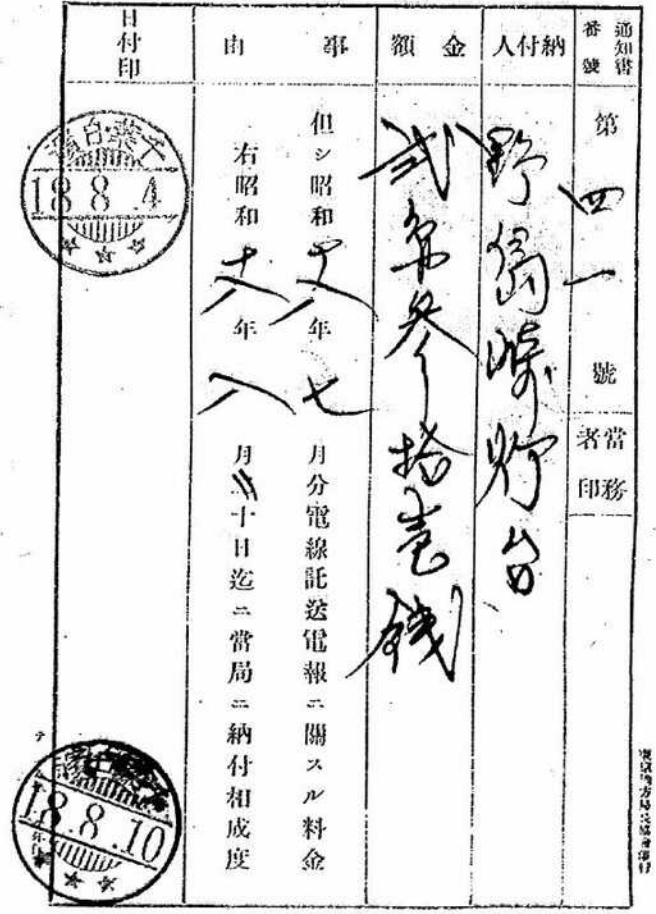 通知書番號
第四一號
當務者印
納付人
野島崎灯台
金額
弐円参拾壱銭
事由
但シ昭和十八年七月分電線託送電報ニ關スル料金
右昭和十八年八月二十日迄ニ當局ニ納付相成度
日付印
18.8.4
18.8.10